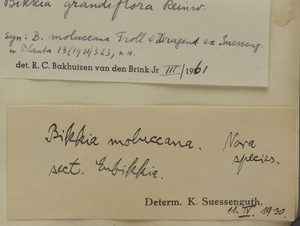 Bikkia grandiflora Reinw.
syn: B. moluccana Troll & Dragend. ex Suesseng.
in Planta 13 (1931) 323, n.n.
det. R. C. Bakhuizen van den Brink Jr III /1961
Bikkia moluccana. Nova
species.
sect. Eubikkia.
Determ. K. Suessenguth.
11. IV. 1930.